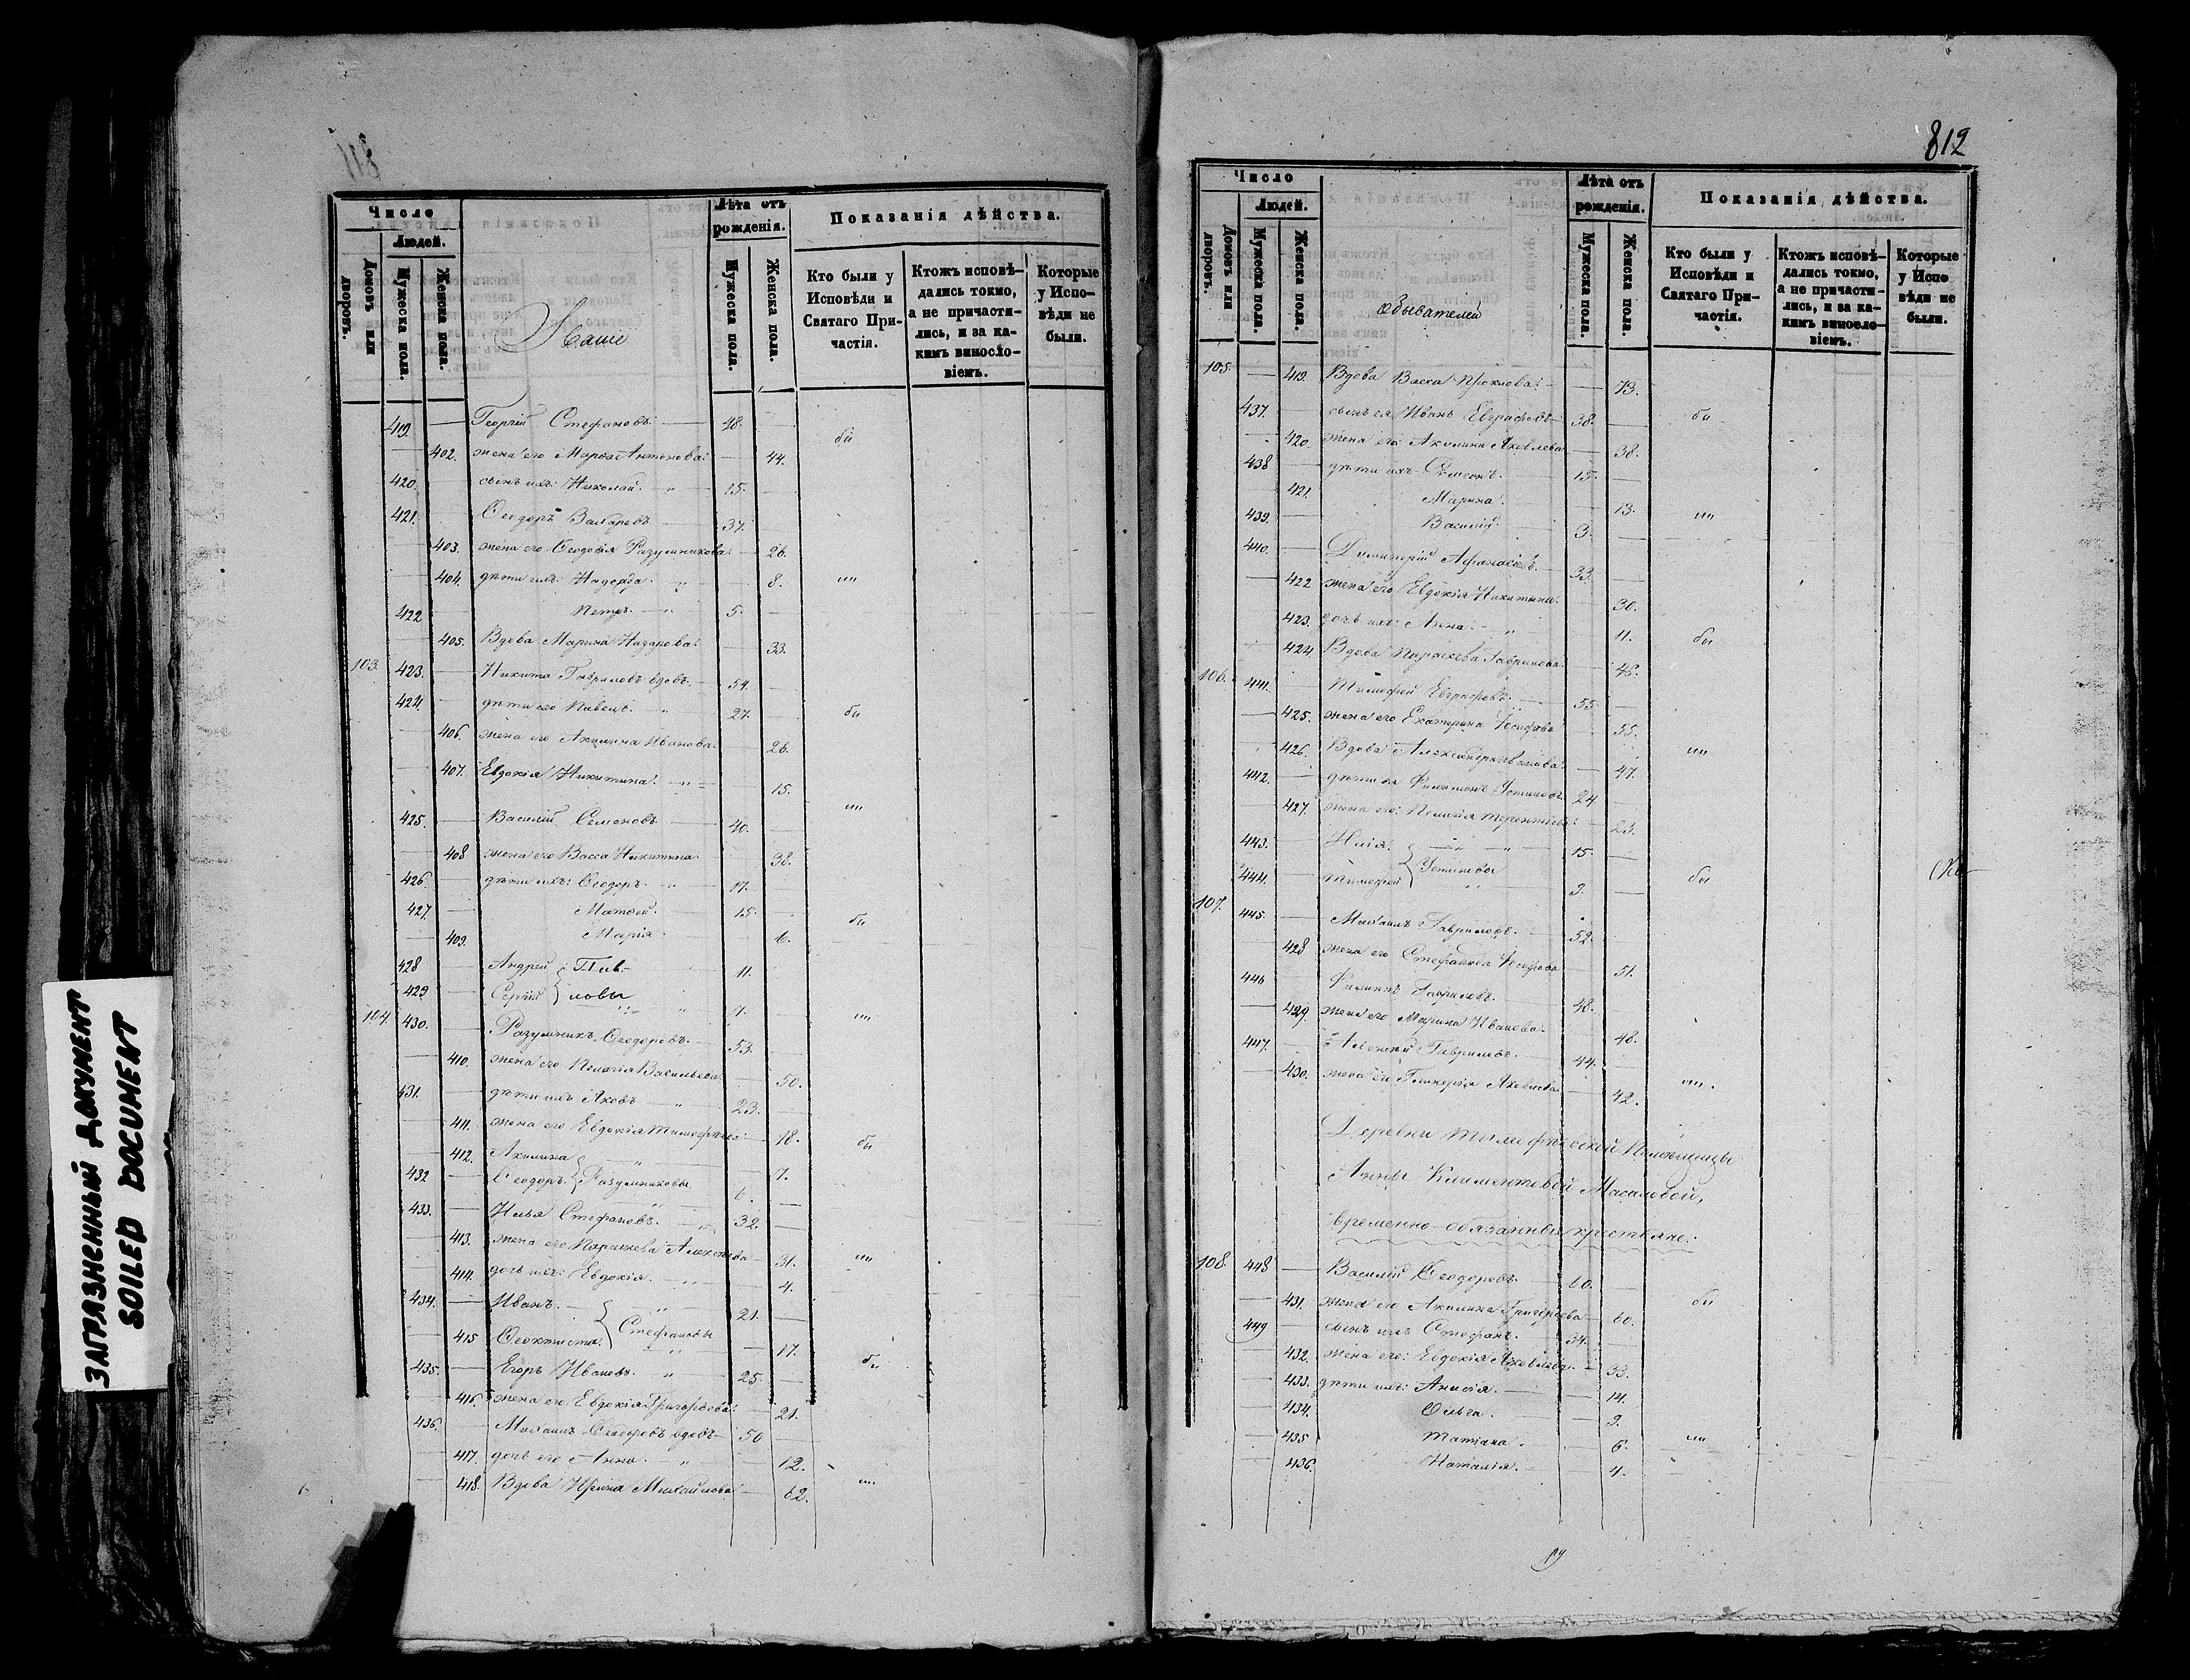 ЗАГРАЗНЕННЫЙ ДОКУМЕНТ
SOILED DOCUMENT
811
Число
Людей.
Домовъ или дворовъ.
Мужеска пола.
Женска пола.
Лѣта отъ рожденія.
Мужеска пола.
Женска пола.
Показанія дѣйства.
Кто были у Исповѣди и Святаго Причастія.
Ктожъ исповѣдались токмо, а не причастились, и за какимъ винословіемъ.
Которые у Исповѣди не были.
419. Георгій Стефановъ. 48. бы
402. жена его Марѳа Антонова. 44.
420. сынъ ихъ: Николай. 15.
421. Ѳеодоръ 37.
403. жена его Ѳеодосія Разумникова. 26.
404. дѣти ихъ: Надежда. 8. ли
422 Петръ. 5.
405. Вдова Марина Назарова. 33.
103. 423. Никита Гавриловъ вдовъ. 54.
424. дѣти его Павелъ. 27. бы
406. жена его Акилина Иванова. 26.
407. Евдокія Никитина. 15.
425. Василій Семеновъ 40. ли
408 жена его Васса Никитина. 38.
426. дѣти ихъ: Ѳеодоръ. 17.
427. Матѳей. 15. бы
409. Марія. 6.
428 Андрей Пав- 11.
429 Сергій ловы 7. ли
104. 430. Разумникъ Ѳеодоровъ. 53.
410. жена его Пелагія Васильева 50.
431. дѣти ихъ Яковъ 23.
411. жена его Евдокія Тимофѣева 18. бы
412. Акилина 7.
432 Ѳеодоръ Разумниковы 6.
433. Илья Стефановъ. 32.
413. жена его Параскева Алексѣева 31. ли
414. дочь ихъ: Евдокія. 4.
434. Иванъ. 21.
415 Ѳеоктиста. Стефановы 17.
435. Егоръ Ивановъ. 25. бы
416. жена его Евдокія Григорьева. 21.
436. Михаилъ вдовъ 50
417. дочь его Анна. 12.
418. Вдова Ирина Михайлова 62. ли
812
Число
Людей.
Домовъ или дворовъ.
Мужеска пола.
Женска пола.
обывателей
Лѣта отъ рожденія.
Мужеска пола.
Женска пола.
Показанія дѣйства.
Кто были у Исповѣди и Святаго Причастія.
Ктожъ исповѣдались токмо, а не причастились, и за какимъ винословіемъ.
Которые у Исповѣди не были.
105. 419. Вдова Васса 73.
437. сынъ ея Иванъ Евграфовъ 38. бы
420. жена его: Акилина Яковлева 38.
438 дѣти ихъ Симеонъ. 15.
421. Марина. 13. ли
439. Василій. 3.
440. Димитрій Афанасіевъ. 33.
422 жена его Евдокія Никитина. 30.
423. дочь ихъ: Анна. 11. бы
424 Вдова Параскева Гаврилова. 45.
106. 441. Тимофей Евграфовъ. 55.
425. жена его Екатерина Іосифова 55.
426. Вдова Александра Иванова. 47. ли
442. дѣти ея Филимонъ Устиновъ 24.
427. жена его: Пелагія Терентіева. 23.
443. Илія. 15.
444. Тимофей Устиновы 9. бы
107. 445. Михаилъ Гавриловъ. 52.
428 жена его Стефанида Іосифова 51.
446 Филиппъ Гавриловъ. 48.
429. жена его Марина Иванова. 48.
447. Алексѣй Гавриловъ. 44.
430. жена его Гликерія Яковлева 42. ли.
Деревни Тимофѣевской Помѣщицы
Анны Климентовой Масаловой,
временно-обязанные крестьяне.
108. 448 Василій Ѳеодоровъ 60.
431. жена его Акилина Григорьева 60. бы
449 сынъ ихъ Стефанъ. 34.
432. жена его: Евдокія Яковлева. 33.
433. дѣти ихъ: Анисія. 14.
434. Ольга. 9.
435 Татіана. 6. ли
436. Наталія. 4.